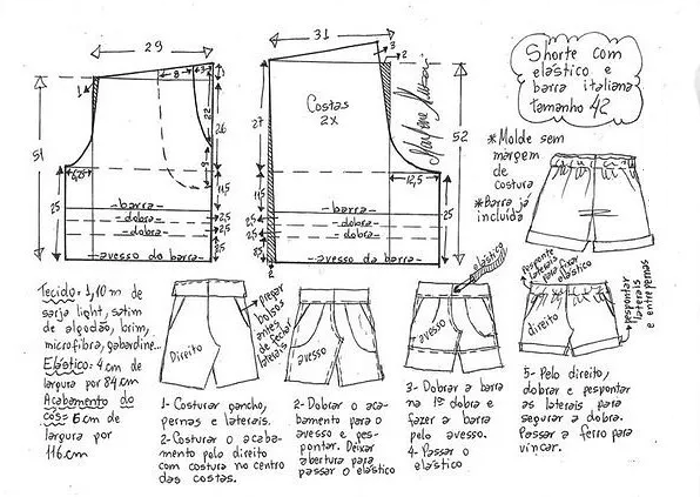 Shorte com
elástico e
barra italiana
tamanho 42
*Molde sem
margem
de
costura
*Barra já
incluída
29
8
3
1
22
26
9
51
6,25
11,5
25
-barra-
-dobra-
-dobra-
2,5
2,5
2,5
avesso da barra
31
3
2
Costas
2x
27
52
12,5
11,5
25
-barra-
-dobra-
-dobra-
2,5
2,5
avesso da barra
2
Tecido= 1,10 m de
sarja light, satim
de algodão, brim,
microfibra, gabardine...
Elástico= 4 cm de
largura por 84 cm
Acabamento do
cós= 6 cm de
largura por
116 cm
Direito
pregar
bolsos
antes
de fechar
laterais
avesso
avesso
elástico
direito
pesponte
laterais
para fixar
elástico
pespontar
laterais
e entrepernas
1- Costurar gancho,
pernas e laterais.
2- Costurar o acaba-
mento pelo direito
com costura no centro
das costas.
2- Dobrar o aca-
bamento para o
avesso e pes-
pontar. Deixar
abertura para
passar o elástico
3- Dobrar a barra
na 1ª dobra e
fazer a barra
pelo avesso.
4- Passar o
elástico
5- Pelo direito,
dobrar e pespontar
as laterais para
segurar a dobra.
Passar a ferro para
vincar.